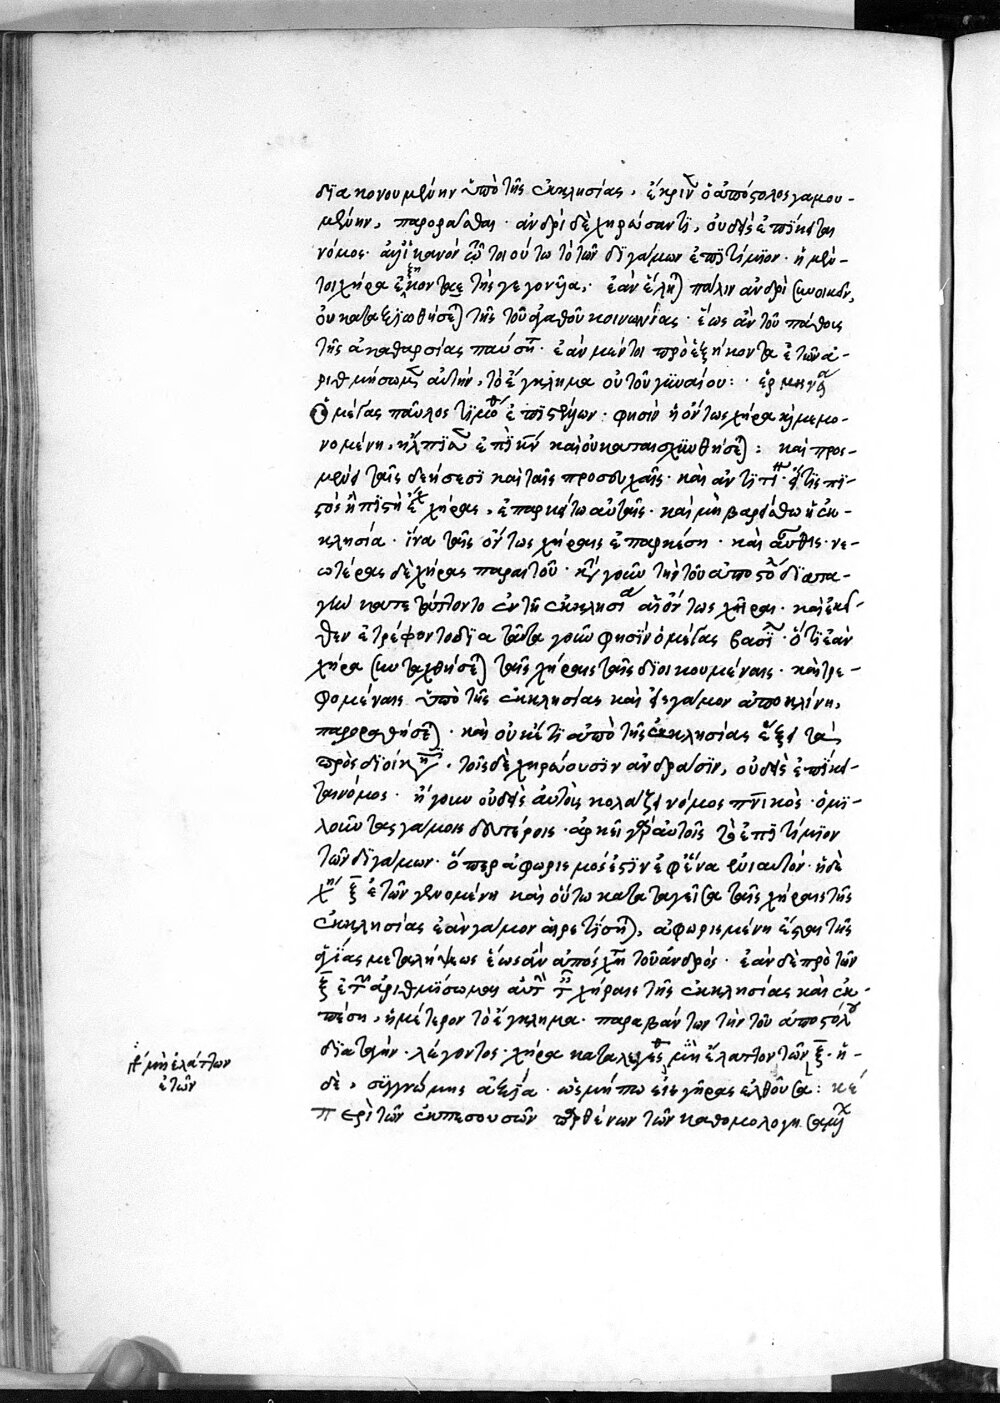 διακονουμένην ὑπὸ τῆς ἐκκλησίας, ἔκρινεν ὁ ἀπόστολος γαμου-
μένην, παρορᾶσθαι· ἀνδρὶ δὲ χηρώσαντι, οὐδεὶς ἐπίκειται
νόμος· ἀλλ' ἱκανὸν τὸ τῶν διγάμων ἐπιτίμιον· ἡ μέν-
τοι χήρα ἑξηκονταέτης γεγονυῖα, ἐὰν ἕληται πάλιν ἀνδρὶ συνοικεῖν,
οὐ καταξιωθήσεται τῆς τοῦ ἀγαθοῦ κοινωνίας· ἕως ἂν τοῦ πάθους
τῆς ἀκαθαρσίας παύσηται· ἐὰν μέντοι πρὸ ἑξήκοντα ἐτῶν ἀ-
ριθμήσωμεν αὐτὴν, τὸ ἔγκλημα οὐ τοῦ γυναίου: ἑρμηνεία
Ὁ μέγας παῦλος τιμοθέῳ ἐπιστέλλων· φησὶν ἡ ὄντως χήρα καὶ μεμο-
νωμένη, ἤλπισεν ἐπὶ κύριον καὶ οὐ καταισχυνθήσεται: καὶ προσ-
μένει ταῖς δεήσεσι καὶ ταῖς προσευχαῖς· καὶ εἴ τις πι-
στὸς ἢ πιστὴ ἔχει χήρας, ἐπαρκείτω αὐταῖς· καὶ μὴ βαρείσθω ἡ ἐκ-
κλησία· ἵνα ταῖς ὄντως χήραις ἐπαρκέση· καὶ αὖθις· νε-
ωτέρας δὲ χήρας παραιτοῦ· κατὰ γοῦν τὴν τοῦ ἀποστόλου διατα-
γὴν κατετάττοντο ἐν τῇ ἐκκλησίᾳ αἱ ὄντως χῆραι· καὶ ἐκεῖ-
θεν ἐτρέφοντο διὰ ταῦτα γοῦν φησὶν ὁ μέγας βασίλειος· ὅτι ἐὰν
χήρα συνταχθήσεται ταῖς χήραις ταῖς διοικουμέναις· καὶ τρε-
φομέναις ὑπὸ τῆς ἐκκλησίας καὶ εἰς γάμον ἀποκλίνῃ,
παροραθήσεται· καὶ οὐκέτι ἀπὸ τῆς ἐκκλησίας ἕξει τὰ
πρὸς διοίκησιν· τοῖς δὲ χηρεύουσιν ἀνδράσιν, οὐδεὶς ἐπίκει-
ται νόμος· ἤγουν οὐδεὶς αὐτοὺς κολάζει νόμος πνευματικὸς· ὁμι-
λοῦντας γάμοις δευτέροις· ἀρκεῖ γὰρ αὐτοῖς τὸ ἐπιτίμιον
τῶν διγάμων· ὅπερ ἀφορισμός ἐστιν ἐφ' ἕνα ἐνιαυτόν· ἡ δὲ
χήρα ξ ἐτῶν γενομένη καὶ οὕτω καταταγεῖσα ταῖς χήραις τῆς
ἐκκλησίας ἐὰν γάμον αἱρετίσηται, ἀφωρισμένη ἔσται τῆς
ἁγίας μεταλήψεως ἕως ἂν ἀπόσχηται τοῦ ἀνδρός· ἐὰν δὲ πρὸ τῶν
ξ ἐτῶν ἀριθμήσωμεν αὐτὴν ταῖς χήραις τῆς ἐκκλησίας καὶ ἐκ-
πέσῃ, ἡμέτερον τὸ ἔγκλημα· παραβάντων τὴν τοῦ ἀποστόλου
διαταγὴν· λέγοντος· χήρα καταλεγέσθω μὴ ἔλαττον τῶν ξ· ἡ-
δὲ, συγγνώμης ἀξία· ὡς μήπω εἰς γῆρας ἐλθοῦσα: κε
περὶ τῶν ἐκπεσουσῶν παρθένων τῶν καθομολογησαμένων
μὴ ἐλάττων
ἐτῶν